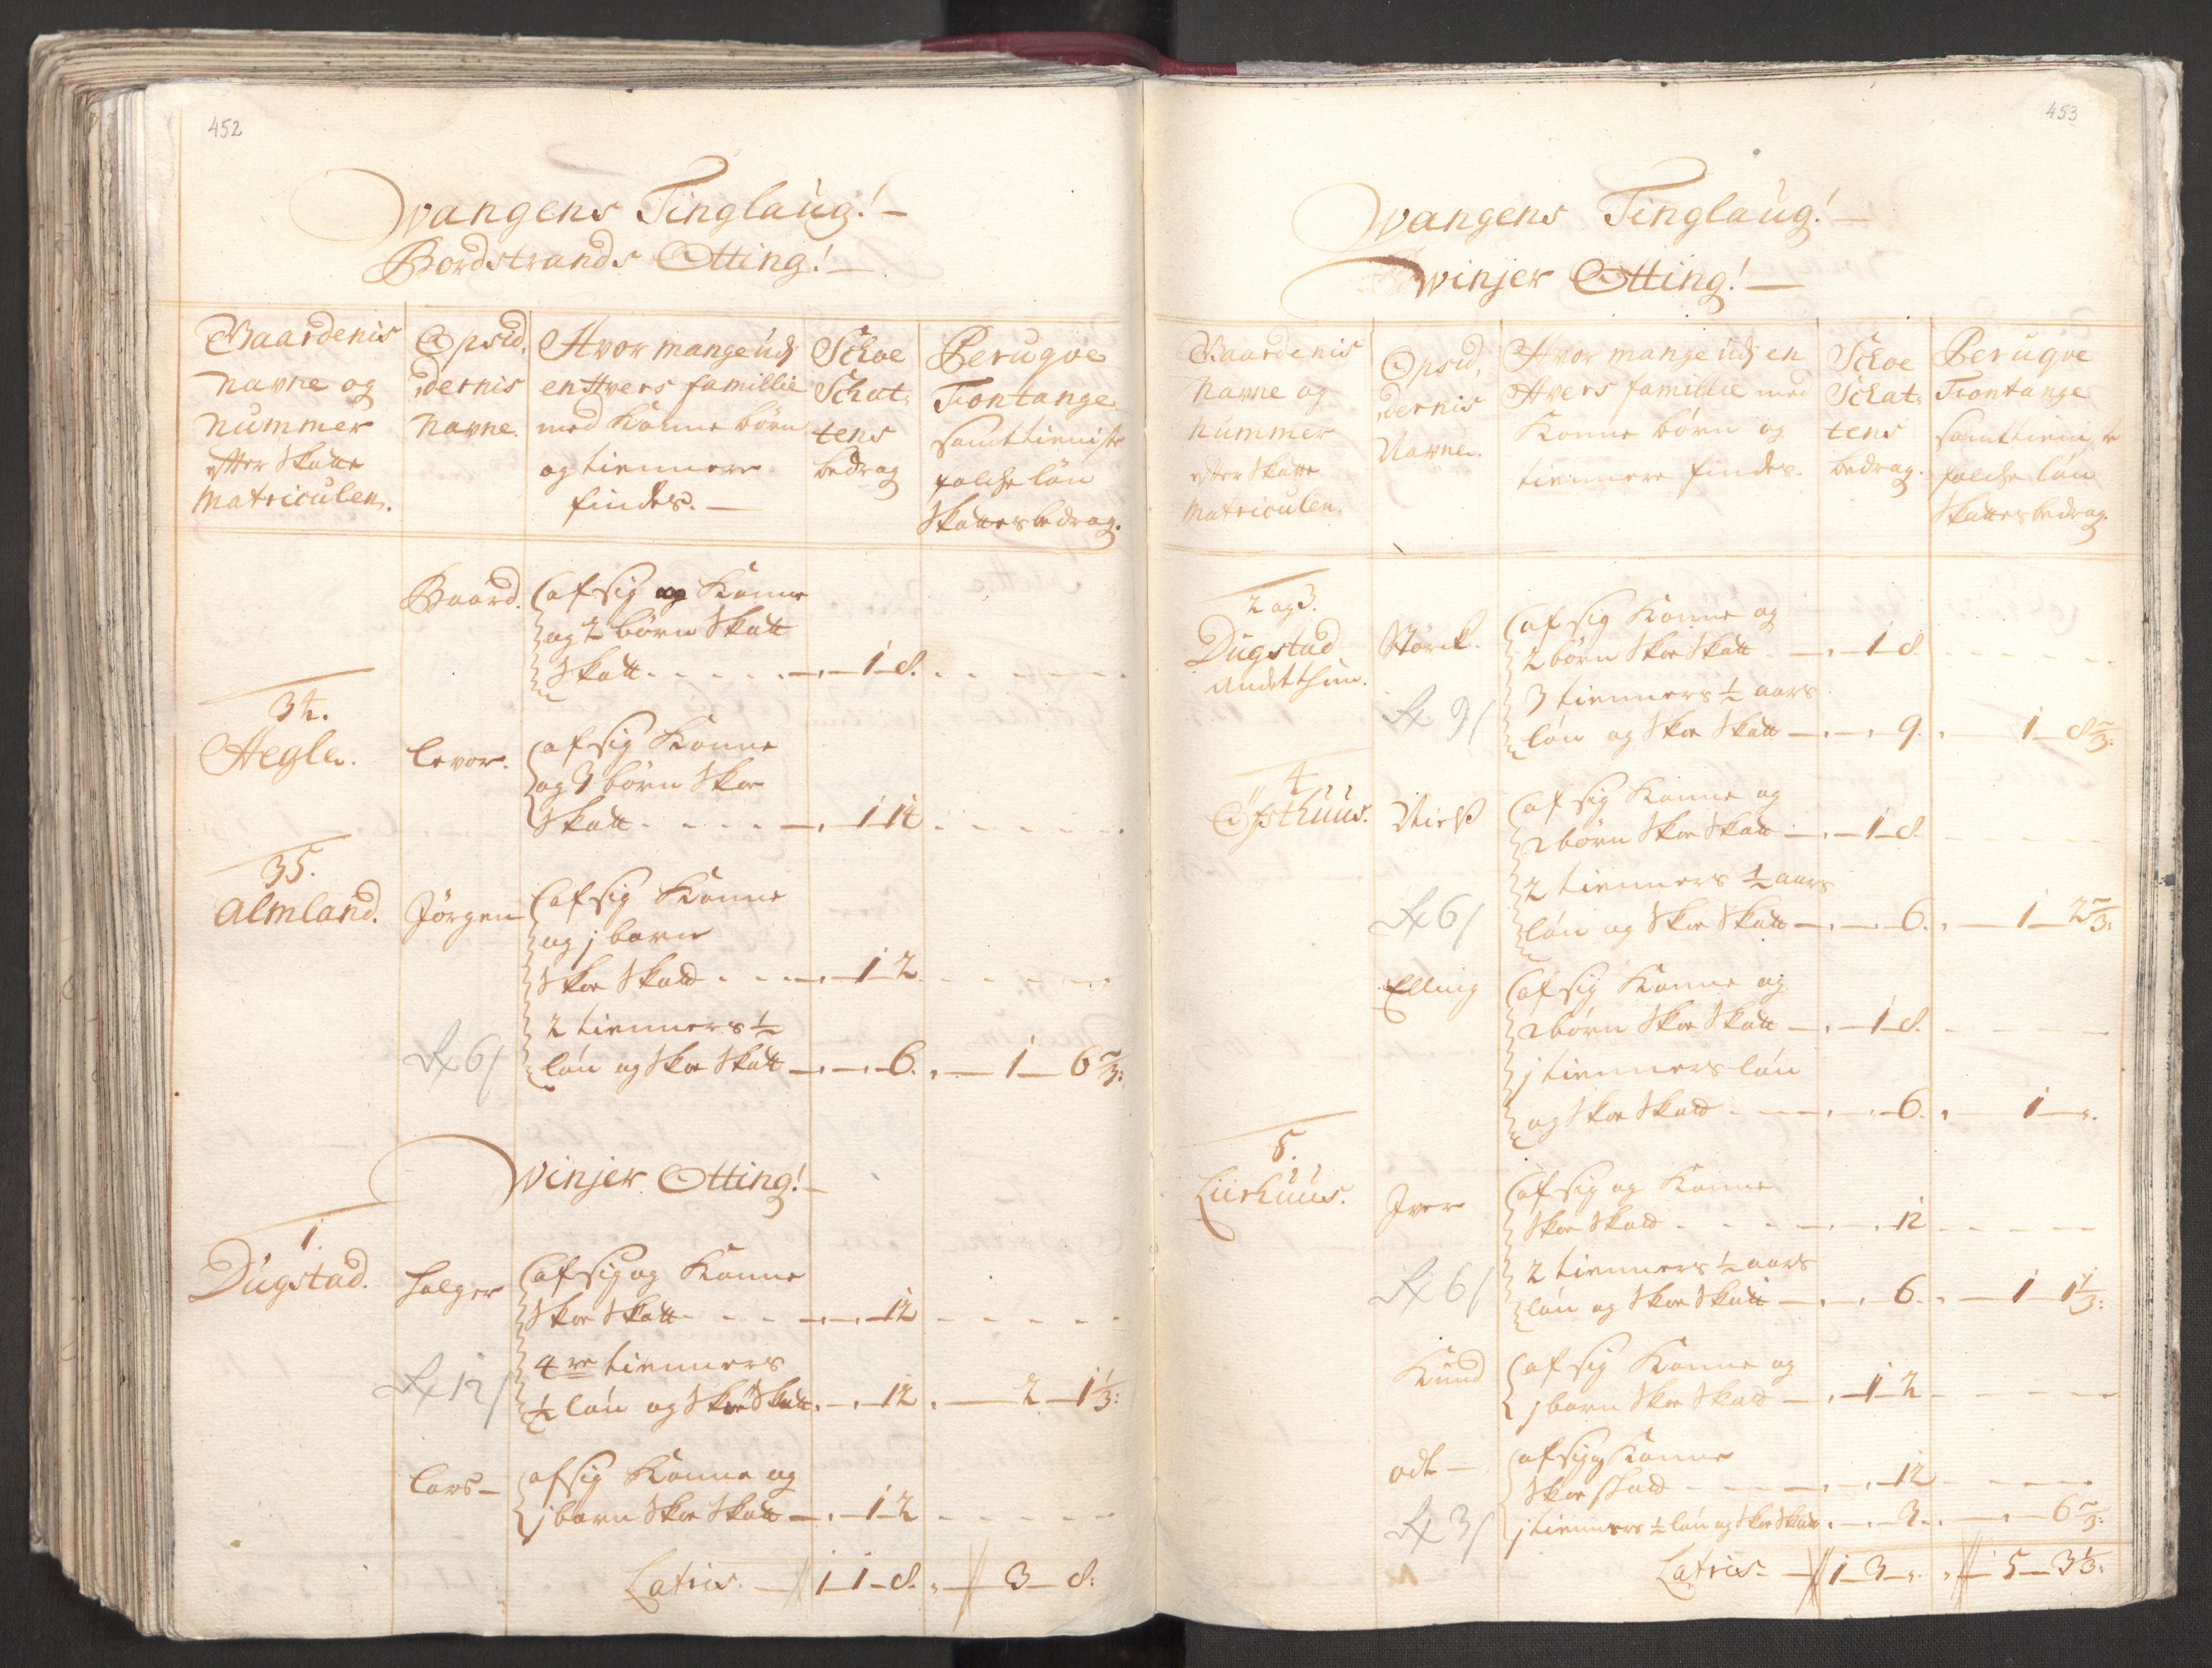 452
Wangens Tinglaug!
Bordstrands Otting!
Gaardenis
navne og
nummer
efter Skatte
Matriculen.
Opsid,,
dernis
Navne.
Hvor mange udj
en Hvers famillie
med Konne börn
og tiennere
findes.
Schoe
Schat,,
tens
bedrag
Peruqve
Fontange
samt tieniste
folche lön
Skattes bedrag.
Baard.
af sig og Konne
og 2 börn Skatt
Skatt - 1 - 8.
34.
Hegle.
Levor.
af sig Konne
og 3 börn Skoe
Skatt - 1 - 14
35.
Almland.
Jörgen
af sig Konne
og j barn
Skoe Skatt - 1 - 2
2 tienners ½
lön og Skoe Skatt - 6. - 1 - 6 2/3:
6/
Winjer Otting!
1.
Dugstad.
Holger
af sig og Konne
Skoe Skatt - 12
4re tienners
½ lön og Skoe Skatt - 12 - 2 - 1 1/3:
12/
Lars
af sig Konne og
j barn Skoe Skatt - 1 - 2
Latris - 1 - 1 - 8. - 3 - 8:
453
Wangens Tinglaug!
Winjer Otting!
Gaardenis
Navne og
nummer
efter Skatte
Matriculen
Opsid,,
dernis
Navne.
Hvor mange udj en
Hvers famillie med
Konne börn og
tiennere findes.
Schoe
Schat,,
tens
bedrag.
Peruqve
Fontange
samt tieniste
folche lön
Skattes bedrag.
2 og 3.
Dugstad
andet thun.
Störck.
af sig Konne og
2 börn Skoe Skatt - 1 - 8
3 tienners ½ aars
lön og Skoe Skatt - 9. - 1 - 8 2/3:
9/
4
Nielß
af sig Konne og
2 börn Skoe Skatt - 1 - 8
2 tienners ½ aars
lön og Skoe Skatt - 6. - 1 - 2 2/3:
6/
Elling
af sig Konne og
2 börn Skoe Skatt - 1 - 8.
j tienners lön
og Skoe Skatt - 6. - 1
5.
Liirhuus.
Iver
af sig og Konne
Skoe Skatt - 12
2 tienners ½ aars
lön og Skoe Skatt - 6. - 1 1 1/3:
6/
Knud
af sig Konne og
j barn Skoe Skatt - 1 - 2
odt
af sig og Konne
Skoe Skatt - 12
j tienners ½ lön og Skoe Skatt - 3. - 6 2/3:
3/
Latris - 1 - 3 - 5 - 3 1/3: